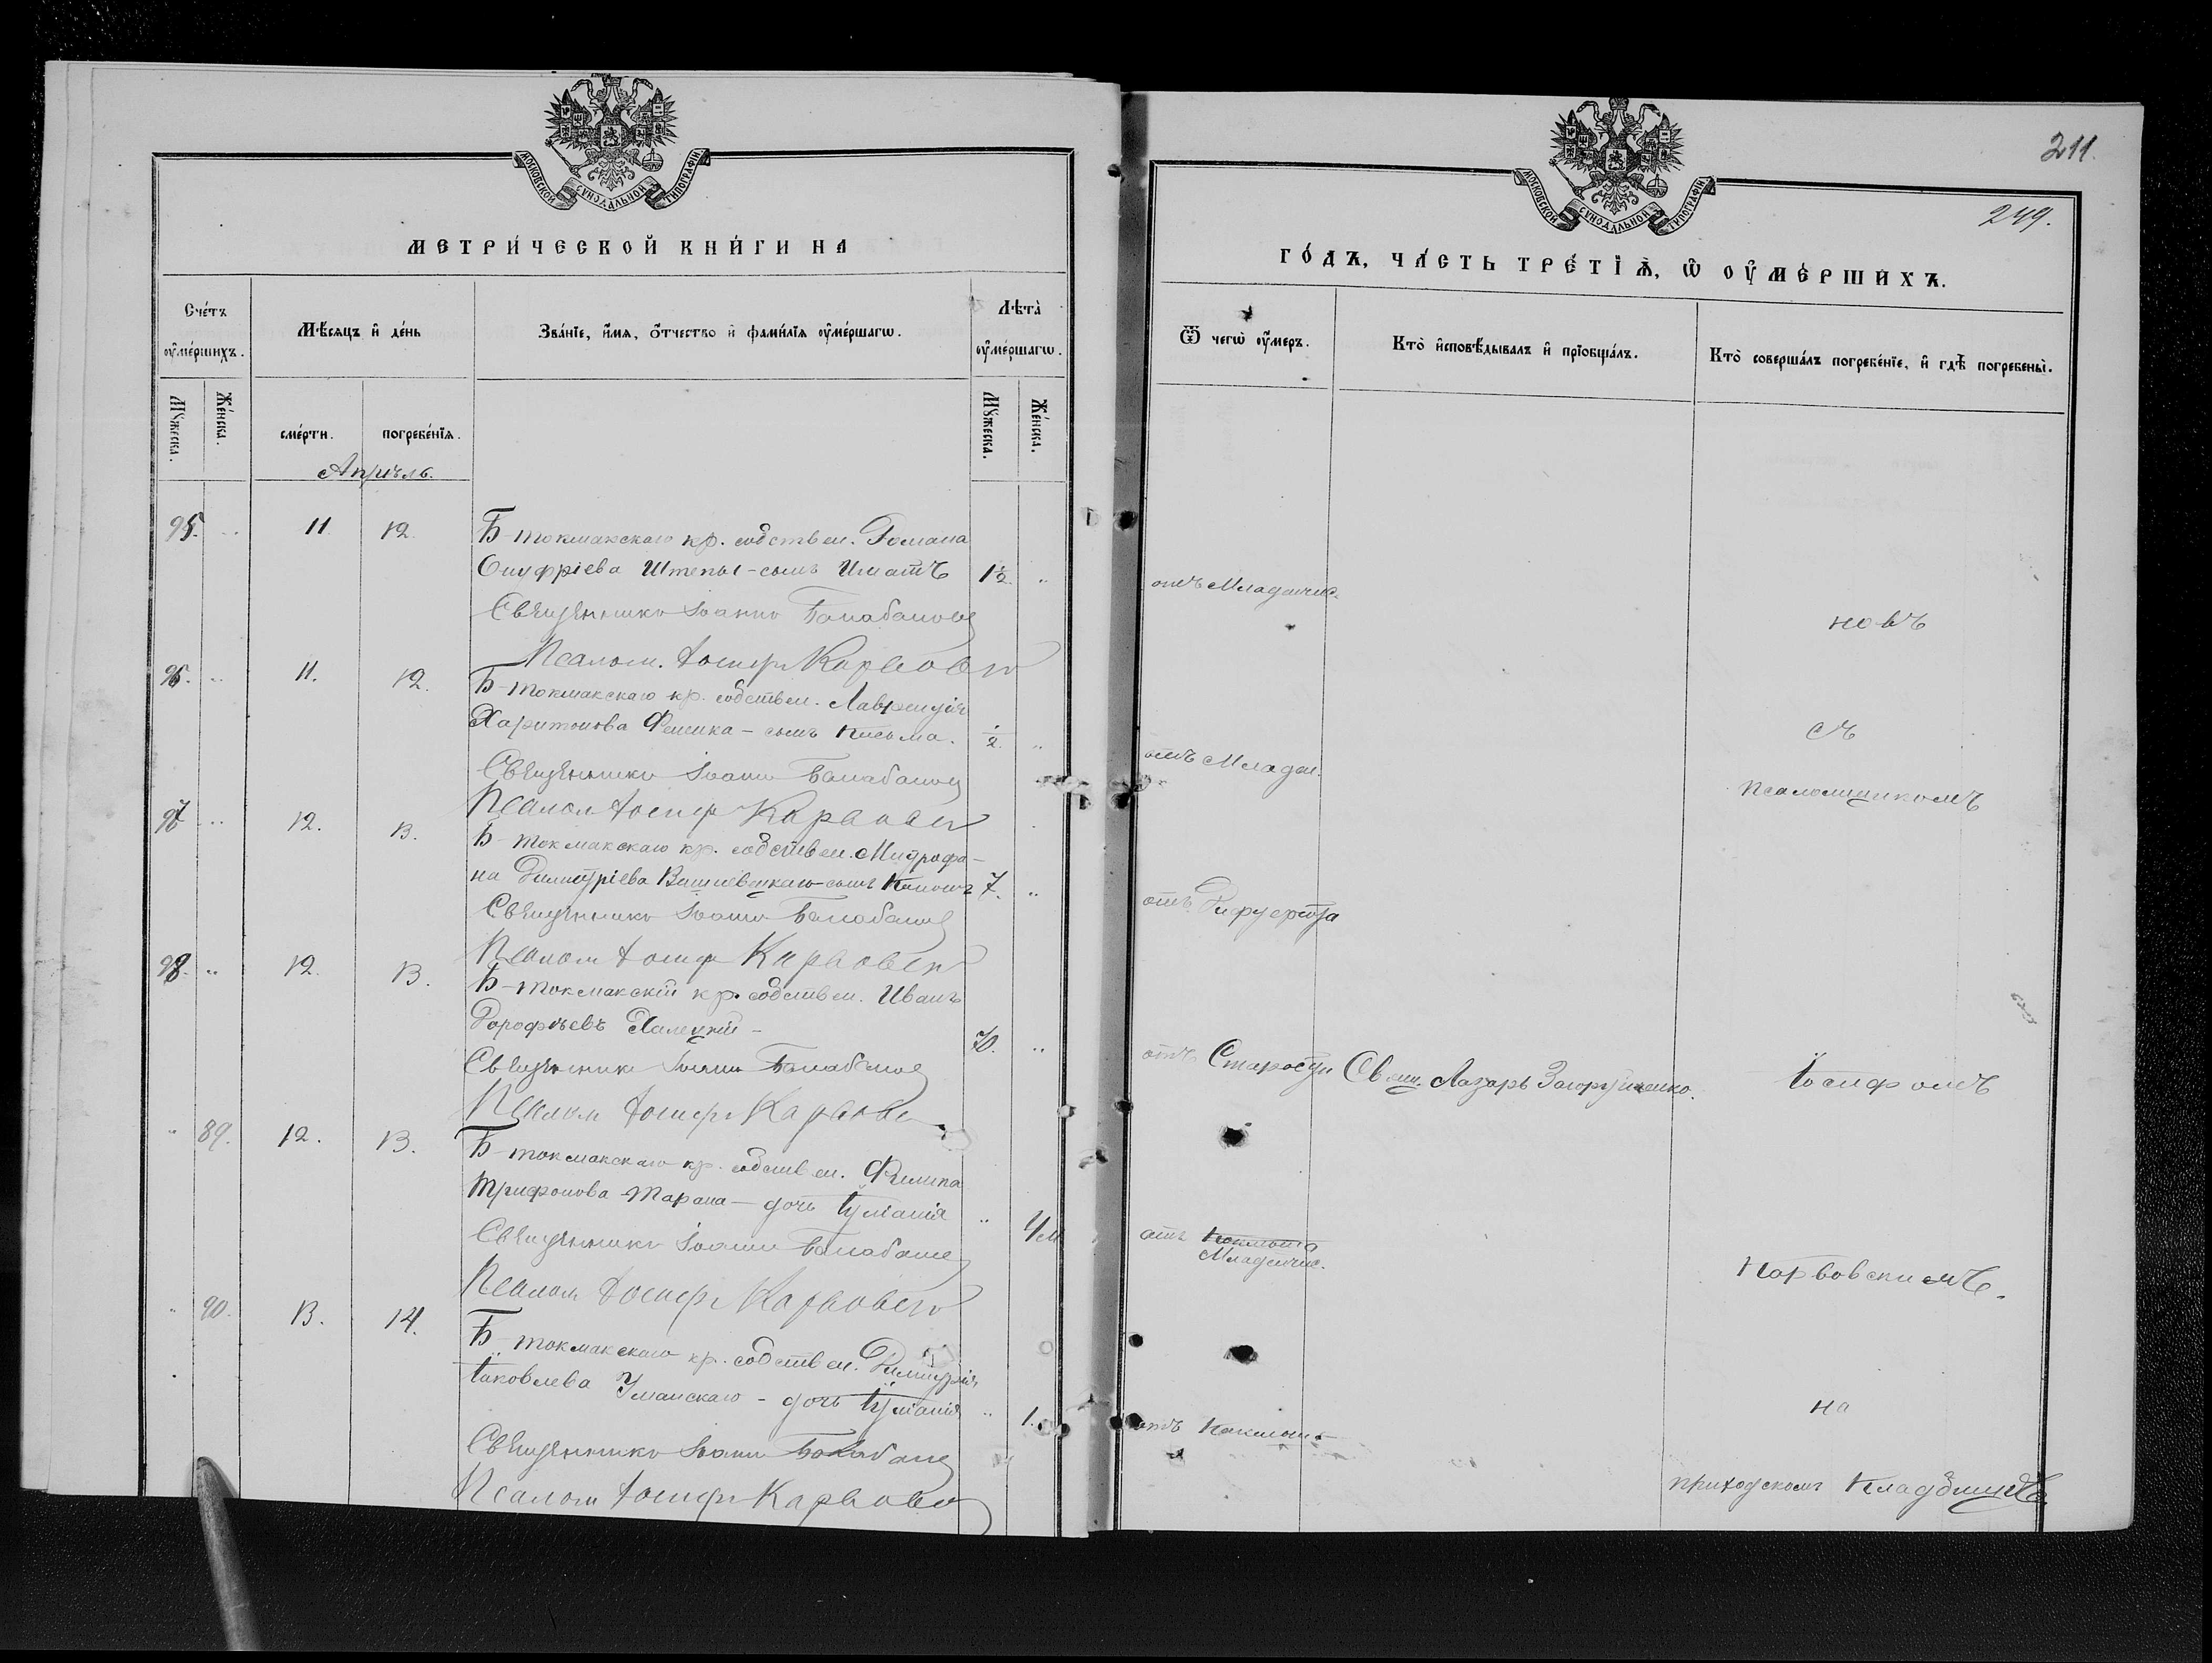 МОСКОВСКОЙ СѴНОДАЛЬНОЙ ТИПОГРАФІИ
МЕТРИ́ЧЕСКОЙ КНИ́ГИ НА
Сче́тъ ᲂу҆ме́ршихъ.
Мѣ́сяцъ и҆ де́нь
Зва́нїе, и҆́мѧ, ѻ҆́тчество и҆ фами́лїѧ ᲂу҆ме́ршагѡ.
Лѣта̀ ᲂу҆ме́ршагѡ.
Мꙋ́жеска.
Же́нска.
сме́рти.
погребе́нїѧ.
Мꙋ́жеска.
Же́нска.
Апрѣль.
95. „ 11 12. Б-токмакскаго кр. собствен. Романа
Онуфріева Штепы-сынъ Игнатъ 1½. „
Священникъ Іоаннъ Балабановъ
Псалом. Іосифъ Карвовск
96. „ 11. 12. Б-токмакскаго кр. собствен. Лаврентія
Харитонова Фенька - сынъ Косьма. ½. „
Священникъ Іоаннъ Балабановъ
Псалом Іосифъ Карвовск
97 „ 12. 13. Б-токмакскаго кр. собствен. Митрофа-
на Димитріева Вишневецкаго-сынъ Кононъ 7. „
Священникъ Іоаннъ Балабановъ
Псалом Іосифъ Карвовск
98. „ 12. 13. Б-токмакскій кр. собствен. Иванъ
Дорофѣевъ Халецкій - 70. „
Священникъ Іоаннъ Балабановъ
Псалом Іосифъ Карвовск
„ 89. 12. 13. Б-токмакскаго кр. собствен. Филипа
Трифонова Тарана - дочь Іуліанія „ 4 м
Священникъ Іоаннъ Балабановъ
Псалом Іосифъ Карвовск
„ 90. 13. 14. Б-токмакскаго кр. собствен. Димитрія
Іаковлева Уманскаго - дочь Іуліанія „ 1.
Священникъ Іоаннъ Балабановъ
Псалом Іосифъ Карвовск
211.
249.
МОСКОВСКОЙ СѴНОДАЛЬНОЙ ТИПОГРАФІИ
ГО́ДЪ, ЧА́СТЬ ТРЕ́ТЇѦ, Ѡ҆ ОУ҆МЕ́РШИХЪ.
Ѿ чегѡ̀ ᲂу҆́меръ.
Кто̀ и҆сповѣ́дывалъ и҆ прїобща́лъ.
Кто̀ соверша́лъ погребе́нїе, и҆ гдѣ̀ погребены̀.
отъ Младенчес.
новъ
съ
отъ Младен.
Псаломщикомъ
отъ Дифтерита
отъ Старости Свящ. Лазарь Загоруленко. Іосифомъ
отъ Коклюша
Младенчес.
Карвовскимъ.
на
отъ Коклюша
приходскомъ кладбищѣ.